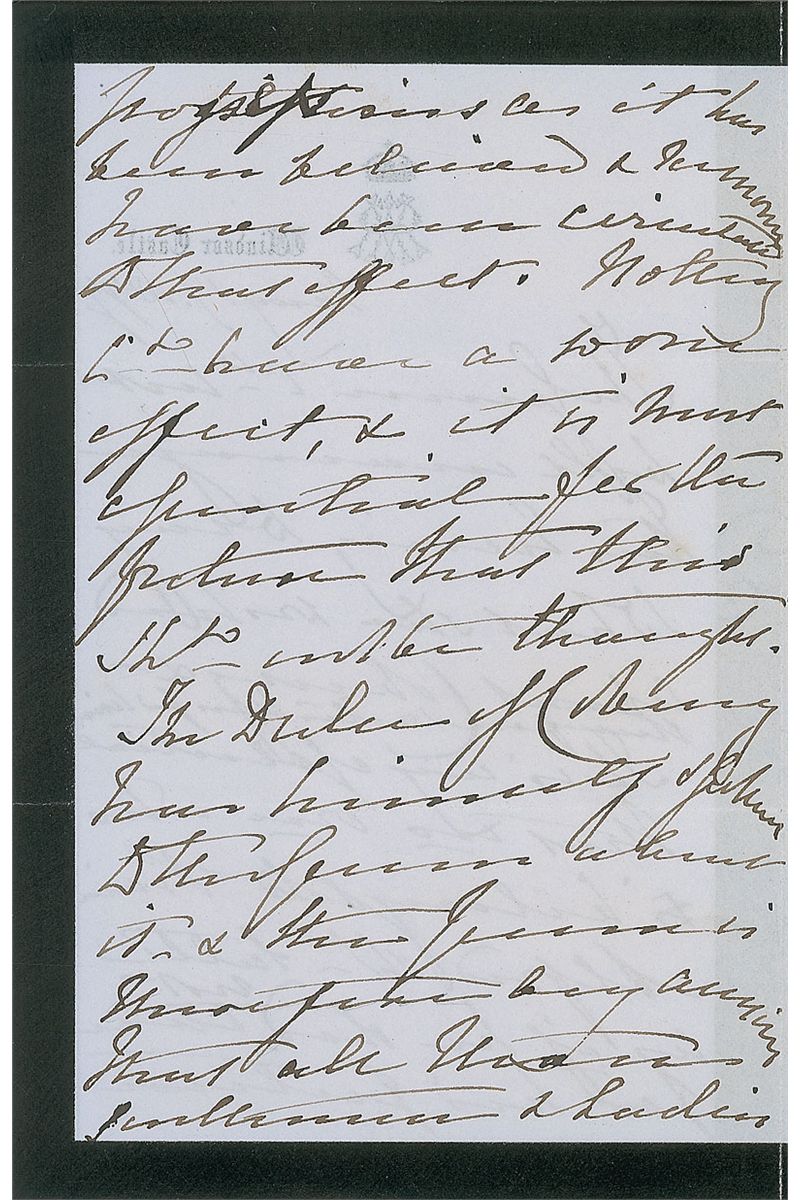 as it has
been believed & rumours
have been circulated
to that effect. Nothing
cld have a worse
effect, & it is most
essential for the
future that this
shld not be thought.
The Duke of Coburg
has himself spoken
to the Queen about
it & the Queen is
therefore very anxious
that all these
gentlemen & Ladies
Windsor Castle.